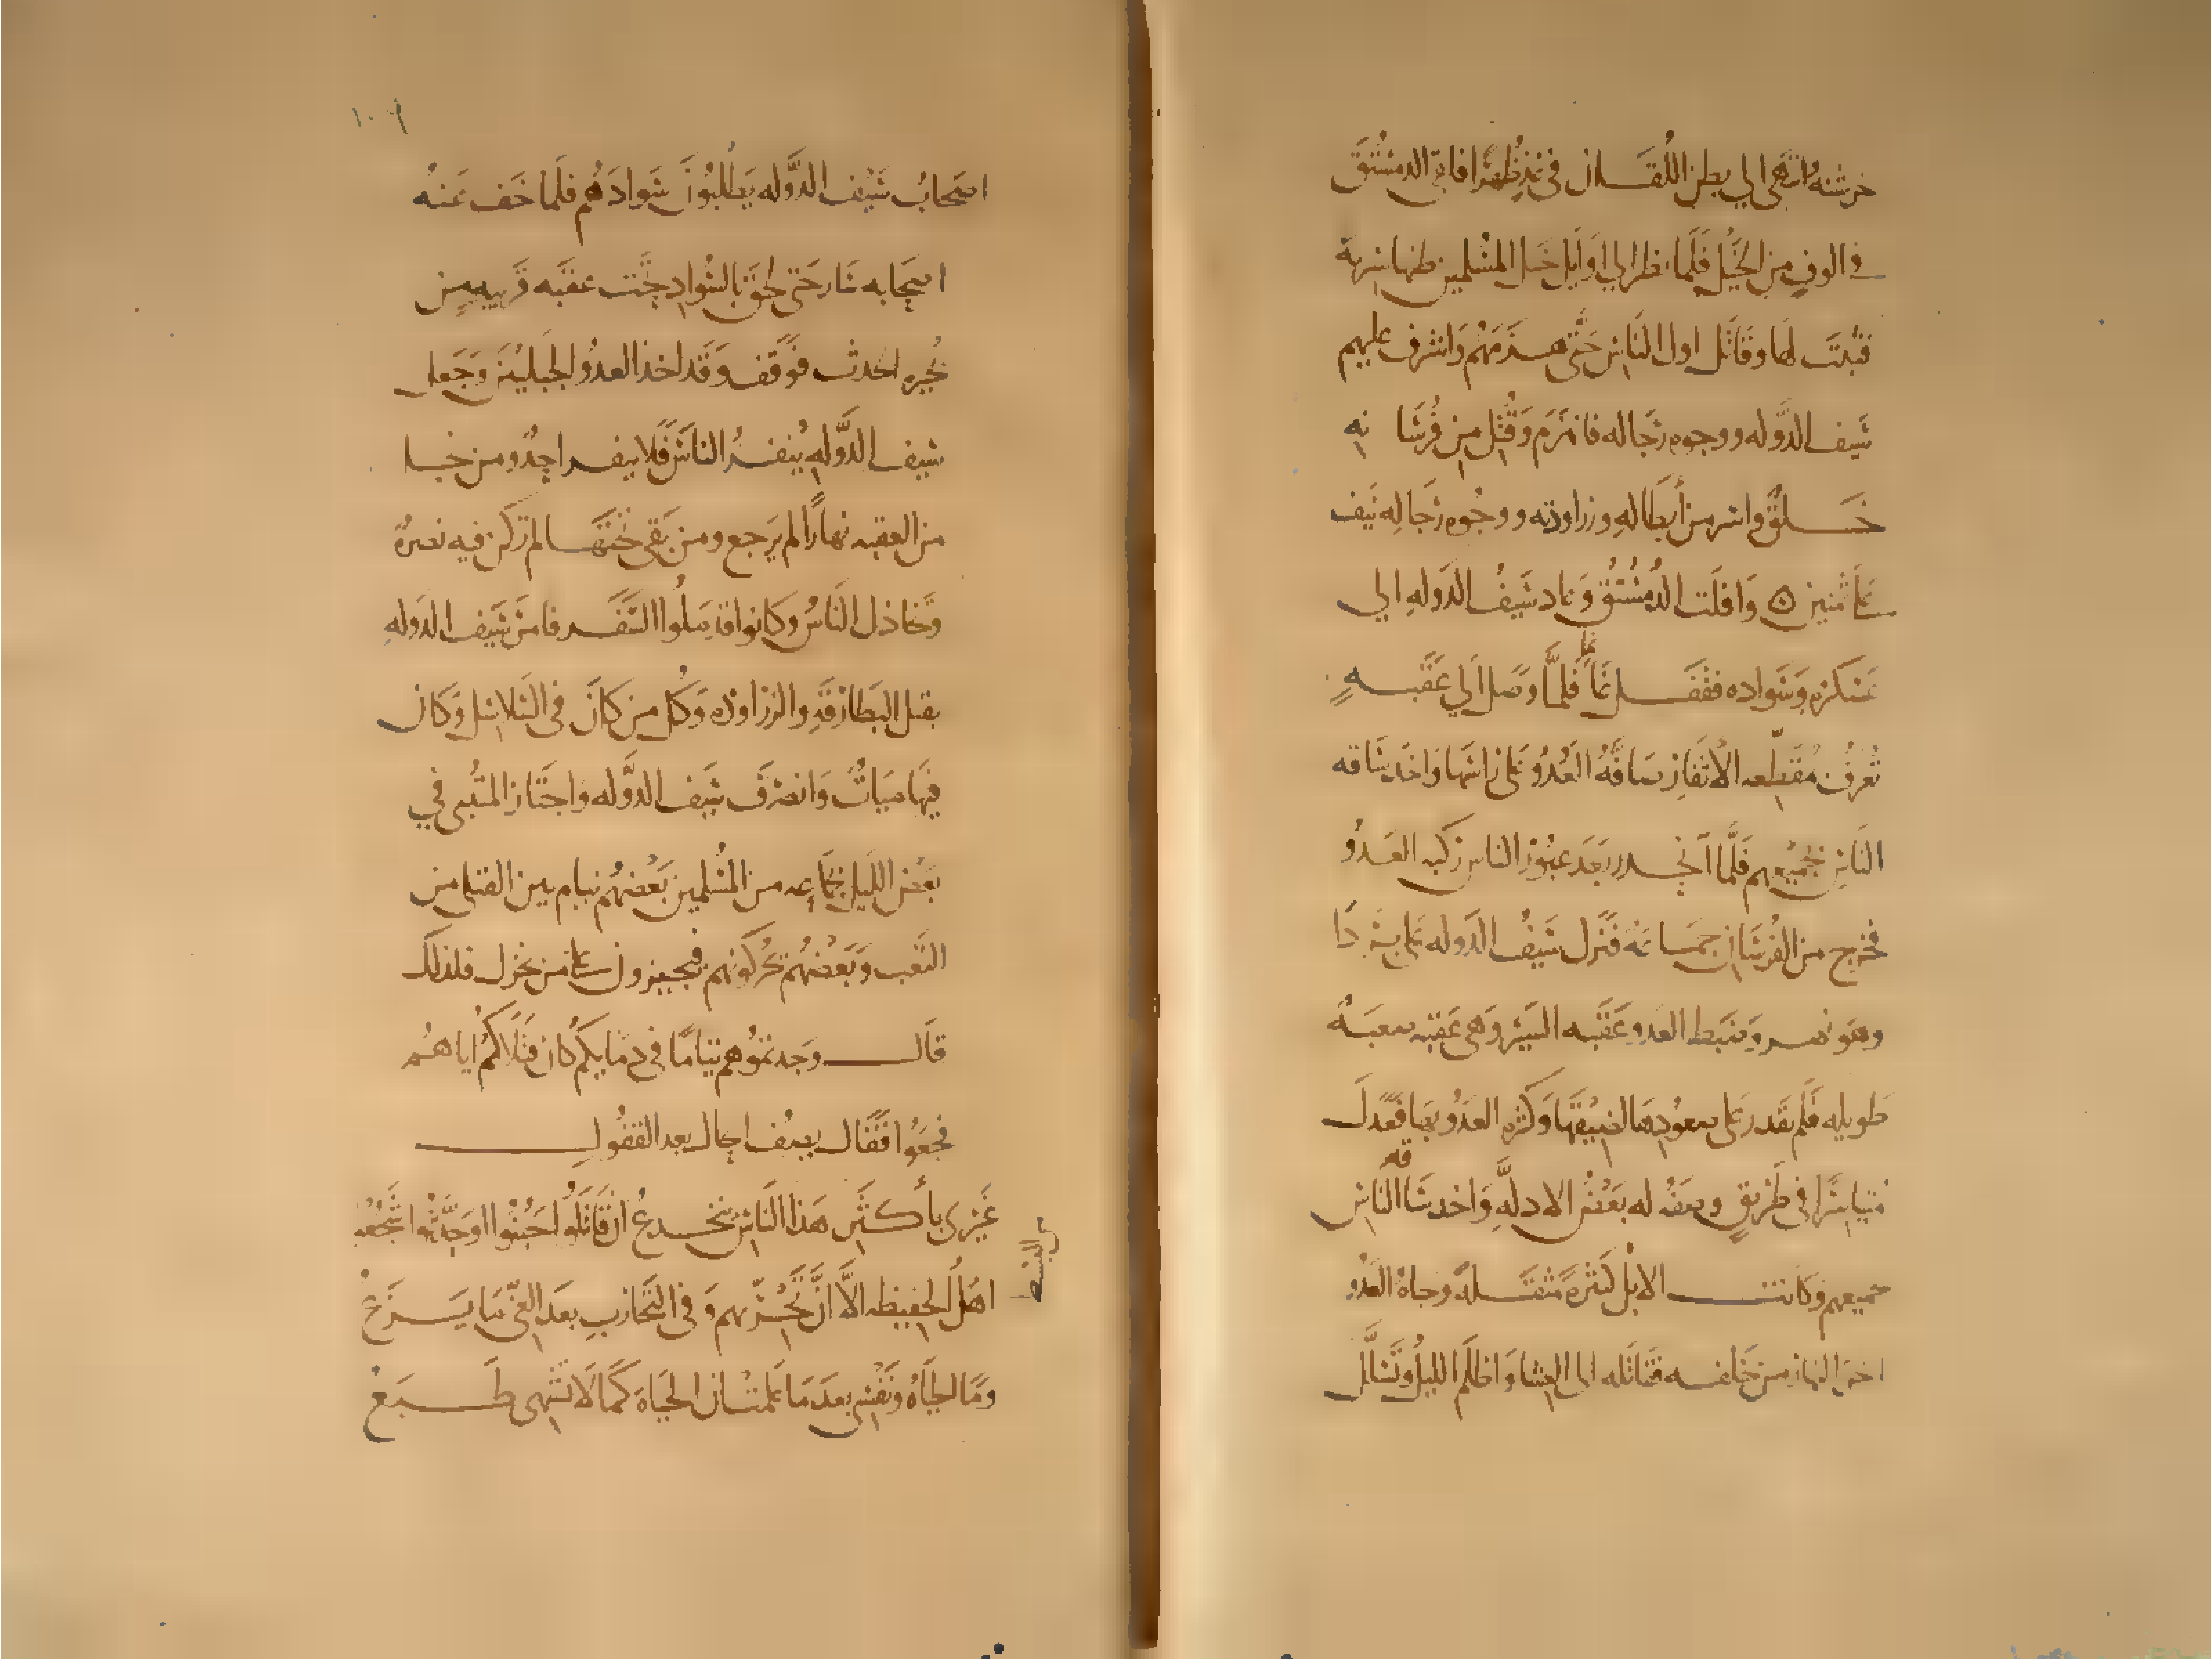 خرشنة وانتهى الى بطن اللقان في غد ظهرا فلقي الدمستق
في الوف من الخيل فلما نظر الى اوايل خيل المسلمين ظنها سرية
فثبت لها وقاتل اول الناس حتى هزمهم واشرف عليهم
سيف الدوله ووجوه رجاله فانهزم وقتل من فرسانه
خلق واسر من ابطاله وزراورته ووجوه رجاله نيف
على ثمنين ۞ وافلت الدمستق وعاد سيف الدوله الى
عسكره وسواده فقفل غانما فلما وصل الى عقبة
تعرف بمقطعه الاثفار صافه العدو على راسها واخذ ساقه
الناس يحميهم فلما انحدر بعد عبور الناس ركبه العدو
فخرج من الفرسان جماعه فنزل سيف الدوله على بردا
وهو نهر وضبط العدو عقبه السير وهى عقبه صعبة
طويله فلم يقدر على صعودها لضيقها وكثره العدو بها فعدل
متياسرا في طريق وصفه له بعض الادله واخذ ساقه الناس
يحميهم وكانت الابل كثيرة مثقله وجاه العدو
اخر النهار من خلفه فقاتله الى العشا واظلم الليل وتسلل
١٠٩
اصحاب سيف الدوله يطلبون سوادهم فلما خف عنه
اصحابه سار حتى لحق بالسواد تحت عقبه قريبه من
بحيره الحدث فوقف وقد اخذ العدو الجبلين وجعل
سيف الدوله ينفر الناس فلا ينفر احد ومن نجا
من العقبه نهارا لم يرجع ومن بقى تحتها لم تكن فيه نصرة
وتخاذل الناس وكانوا قد ملوا السفر فامر سيف الدوله
بقتل البطارقة والزراوره وكل من كان في السلاسل وكان
فيها مئات وانصرف سيف الدوله واجتاز المتنبى في
بعض الليل بجماعه من المسلمين بعضهم نيام بين القتلى من
التعب وبعضهم يحركونهم فيجهزون على من يحرك فلذلك
قال وجدتموهم نياما في دمايكم كان قتلاكم اياهم
فجعوا فقال يصف الحال بعد القفول
غيرى باكثر هذا الناس ينخدع ان قاتلوا جبنوا او حدثوا شجعوا
من البسيط
اهل الحفيظه الا ان تجربهم وفي التجارب بعد الغى ما يزع
وما الحياة ونفسى بعد ما علمت ان الحياة كما لا تشتهى طبع